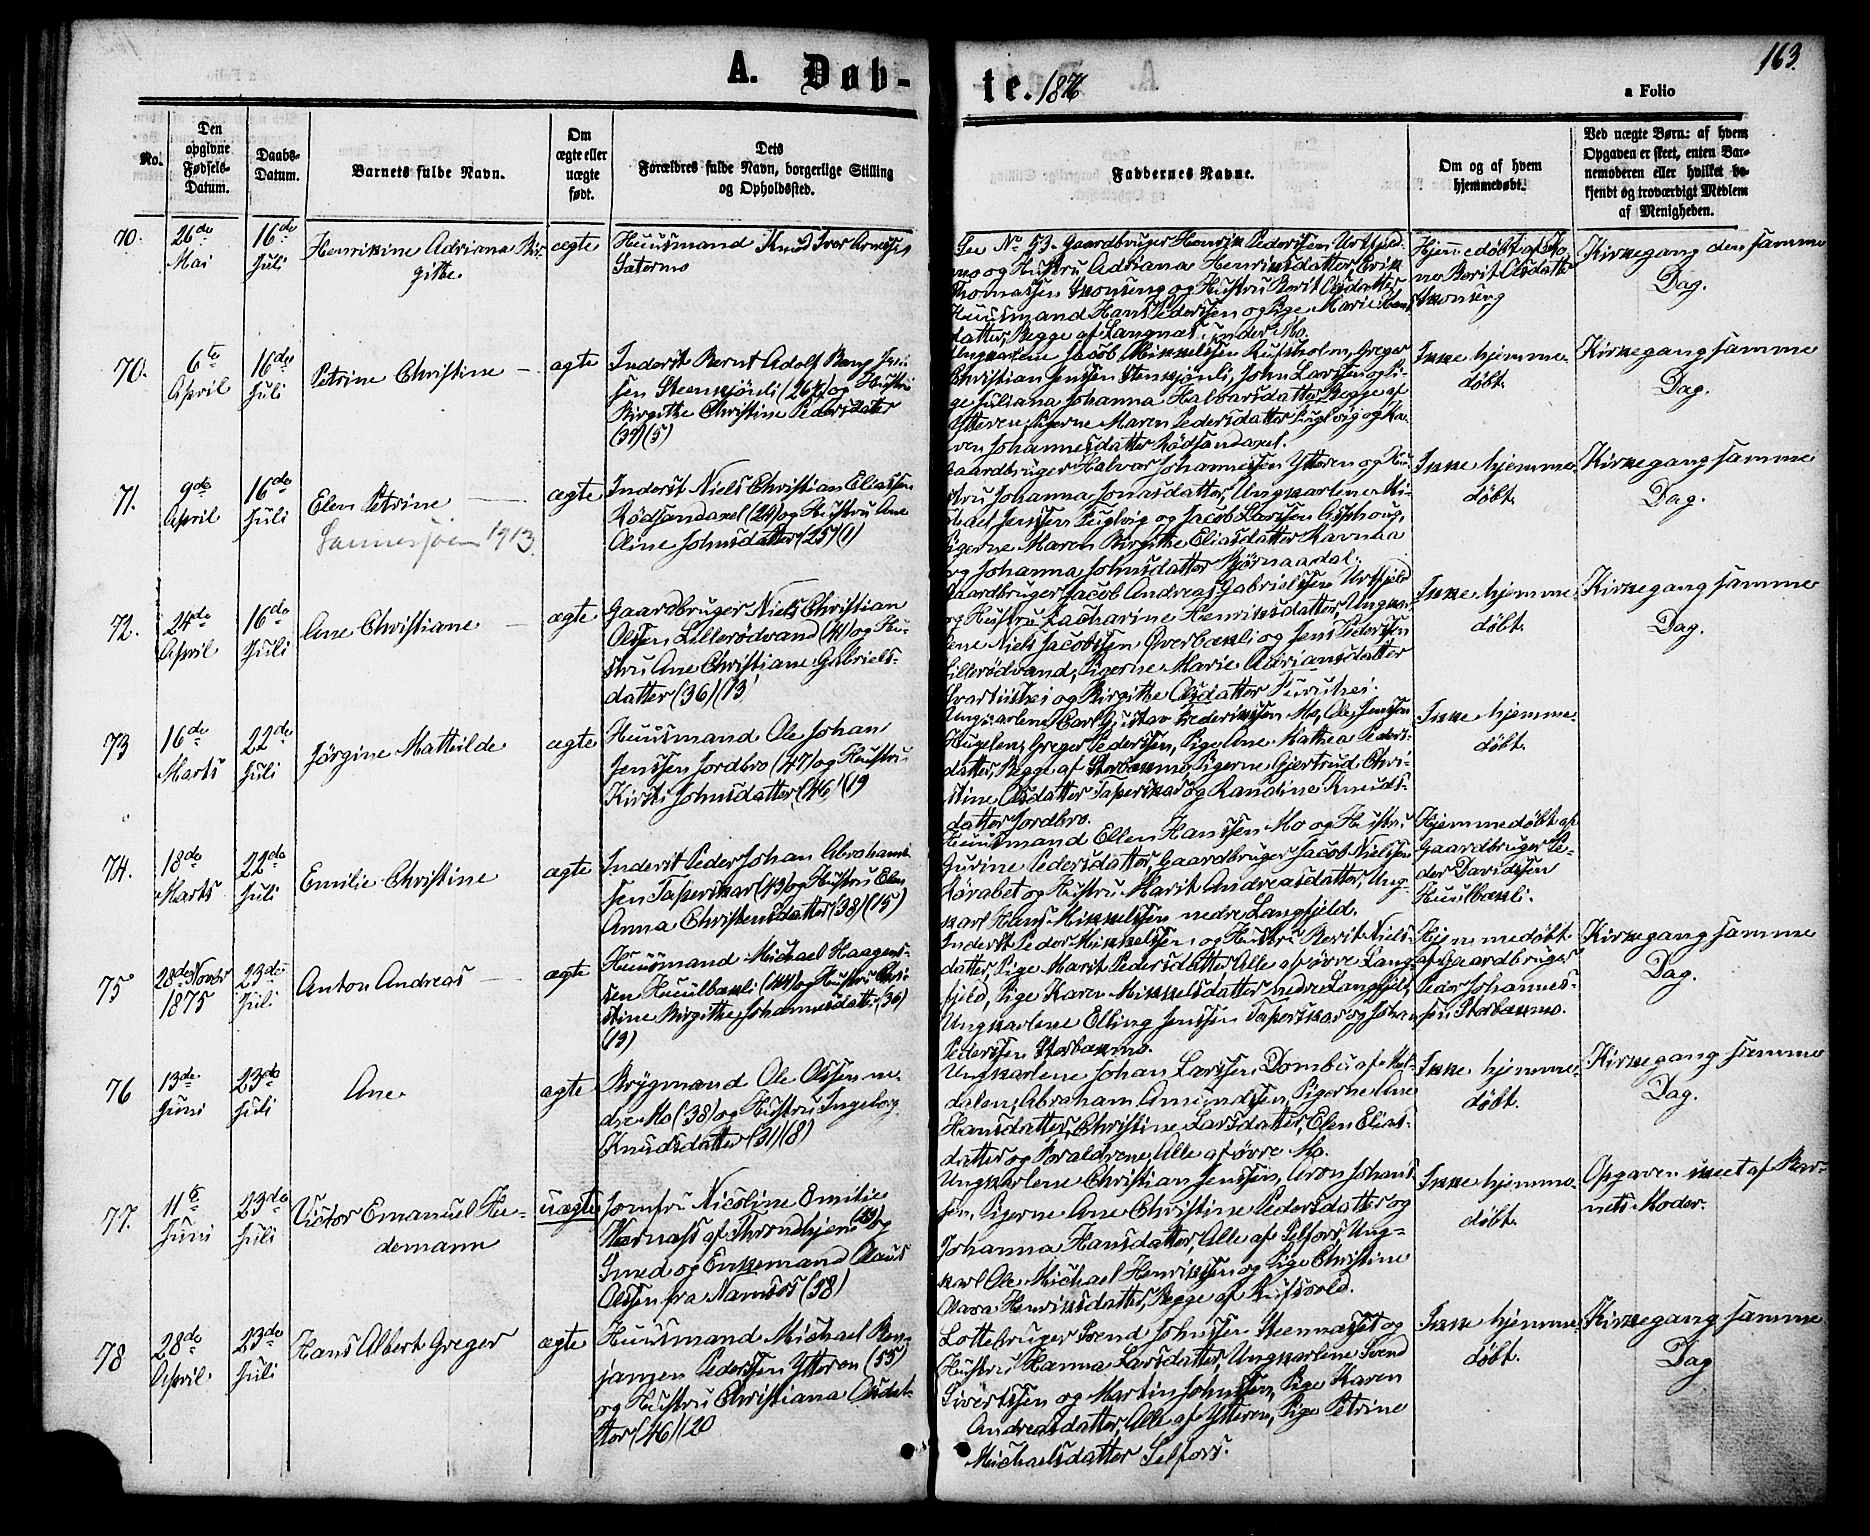 163.
A. Døb-
te. 1876
a Folio
No.
Den
opgivne
Fødsels-
Datum.
Daabs-
Datum.
Barnets fulde Navn.
Om
ægte eller
uægte
født.
Dets
Forældres fulde Navn, borgerlige Stilling
og Opholdssted.
Faddernes Navne.
Om og af hvem
hjemmedøbt.
Ved uægte Børn: af hvem
Opgaven er skeet, enten Bar-
nemoderen eller hvilket be-
kjendt og troværdigt Medlem
af Menigheden.
70.
26de
Mai
16de
Juli
Henrikine Adriana Bir-
githe
ægte
Huusmand Knud Iver Arnessen
Sætermo
See No 53. Gaardbruger Henrik Pederssen Urtfjeld-
mo og Hustru Adriana Henriksdatter, Erik
Thomassen Skonseng og Hustru Berit Olsdatter
Huusmand Hans Pederssen og Pige Marie Hans-
datter, Begge af Langnæs under Mo.
Hjemmedøbt af Ko-
ne Berit Olsdatter
Skonseng
Kirkegang den samme
Dag.
70.
6te
April
16de
Juli
Petrine Christine
ægte
Inderst Bernt Adolf Bang Jens-
sen Steenkjønli (26) og Hustru
Birgithe Christine Pedersdatter
(34) (5)
Ungkarlene Jacob Mikkelssen Rufsholm, Greger
Christian Jenssen Stenkjønli, John Larssen og Pi-
ge Juliana Johanna Halvarsdatter, Begge af
Ytteren, Pigerne Maren Pedersdatter Luglvig og Ka-
ren Johannesdatter Rødsandaxel.
Ikke hjemme-
døbt.
Kirkegang samme
Dag.
71.
9de
April
16de
Juli
Elen Petrine
Sannessjøen 1913.
ægte
Inderst Niels Christian Eliassen
Rødsandaxel (24) og Hustru Ane
Oline Johnsdatter (25) (1)
Gaardbruger Halvar Johannessen Ytteren og Hu-
stru Johanna Jonasdatter, Ungkarlene Mi-
chael Jenssen Luglvig og Jacob Larssen Asphaug,
Pigerne Maren Birgithe Eliasdatter Ravnaa
og Johanna Johnsdatter Bjørnaadal.
Ikke hjemme-
døbt.
Kirkegang samme
Dag.
72.
24de
April
16de
Juli
Ane Christiane
ægte
Gaardbruger Niels Christian
Olssen Lillerødvand (41) og Hu-
stru Ane Christiane Gabriels-
datter (36) (13
Gaardbruger Jacob Andreas Gabrielssen Urtfjeld
og Hustru Zacharine Henriksdatter, Ungkar-
lene Niels Jacobssen Overbækli og Jens Pederssen
Lillerødvand, Pigerne Marie Adriansdatter
Svartishei og Birgithe Olsdatter Furuhei.
Ikke hjemme-
døbt.
Kirkegang samme
Dag.
73
16de
Marts
22de
Juli
Jørgine Mathilde
ægte
Huusmand Ole Johan
Jenssen Jordbro (47) og Hustru
Kirsti Johnsdatter (46) (19
Ungkarlene Carl Gustav Frederikssen Mo, Ole Jenssen
Hugelen, Greger Pederssen, Pige Ane Mathea Peders-
datter, Begge af Storbækmo, Pigerne Gjertrud Chri-
stine Olsdatter Taperskar og Randine Knuds-
datter Jordbro.
Ikke hjemme-
døbt.
74.
18de
Marts
22de
Juli
Emilie Christine
ægte
Inderst Peder Johan Abrahams-
sen Taperskar (43) og Hustru Elen
Anna Christensdatter (38) (15)
Huusmand Ellen Hanssen Mo og Hustru
Gurine Pedersdatter, Gaardbruger Jacob Nielssen
Rørabet og Hustru Marit Andreasdatter, Ung-
karl Hans Mikkelssen nedre Langfjeld.
Hjemmedøbt af
Gaardbruger Pe-
der Davidssen
Huulbækli.
75
28de Novbr
1875
23de
Juli
Anton Andreas
ægte
Huusmand Michael Haagens-
sen Huulbækli (44) og Hustru Chri-
stine Birgithe Johannesdatter (36)
(12)
Inderst Peder Mikkelssen og Hustru Berit Niels-
datter, Pige Marit Pedersdatter Alle af øvre Lang-
fjeld, Pige Karen Mikkelsdatter nedre Langfjeld,
Ungkarlene Elling Jenssen Taperskar og Johan
Pederssen Storbækmo.
Hjemmedøbt
af Gaardbruger
Peder Johannes-
sen Storbækmo.
Kirkegang samme
Dag.
76
13de
Juni
23de
Juli
Ane
ægte
Brygmand Ole Olssen ne-
dre Mo (38) og Hustru Ingeborg
Knudsdatter (31) (8)
Ungkarlene Johan Larssen Dombu af Røl-
dalen, Abraham Amundssen, Pigerne Ane
Hansdatter, Christine Larsdatter, Elen Elias-
datter og Forældrene, Alle af øvre Mo.
Ikke hjemme-
døbt.
Kirkegang samme
Dag.
77.
11te
Juni
23de
Juli
Victor Emanuel He-
demann
uægte
Jomfru Nicoline Emilie
Værnæss af Throndhjem (29) og
Smed og Enkemand Olaus
Olssen fra Namsos (38)
Ungkarlene Christian Jenssen, Aron Johans-
sen, Pigerne Ane Christine Pedersdatter og
Johanna Hansdatter, Alle af Selfors, Ung-
karl Ole Michael Henrikssen og Pige Christine
Olava Henriksdatter, Begge af Rufsvold.
Ikke hjemme-
døbt.
Opgaven skeet af Bar-
nets Moder.
78
28de
April
23de
Juli
Hans Albert Greger
ægte
Huusmand Michael Ben-
jamen Pederssen Ytteren (55)
og Hustru Christiana Olsdat-
ter (46) (20
Lottebruger Svend Johnssen Steennæsset og
Hustru Hanna Larsdatter, Ungkarlene Svend
Sivertssen og Martin Johnssen, Pige Karen
Andreasdatter, Alle af Ytteren, Pige Petrine
Michaelsdatter Selfors.
Ikke hjemme-
døbt.
Kirkegang samme
Dag